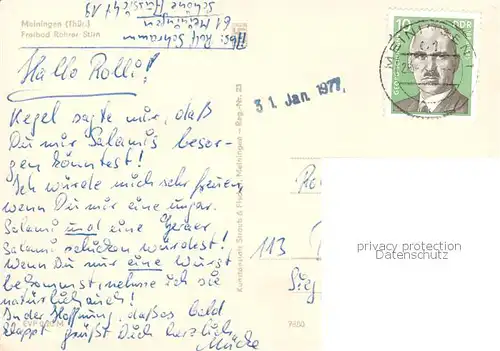 Meiningen (Thür.)
Freibad Rohrer Stirn
Abs: Rolf Schramm
61 Meiningen
Hallo Rolli!
Kegel sagte mir, daß
Du mir Salamis besor-
gen könntest!
Ich würde mich sehr freuen,
wenn Du mir eine ungar.
Salami und eine Geraer
Salami schicken würdest!
Wenn Du mir eine Wurst
bekommst, nehme ich sie
natürlich auch!
In der Hoffnung, daß es bald
klappt grüßt Dich herzlich
Mücke
EVP 0,20 M
Reg.-Nr. 23
31. Jan. 1977
10
DDR
MEININGEN 1
113
privacy protection
Datenschutz